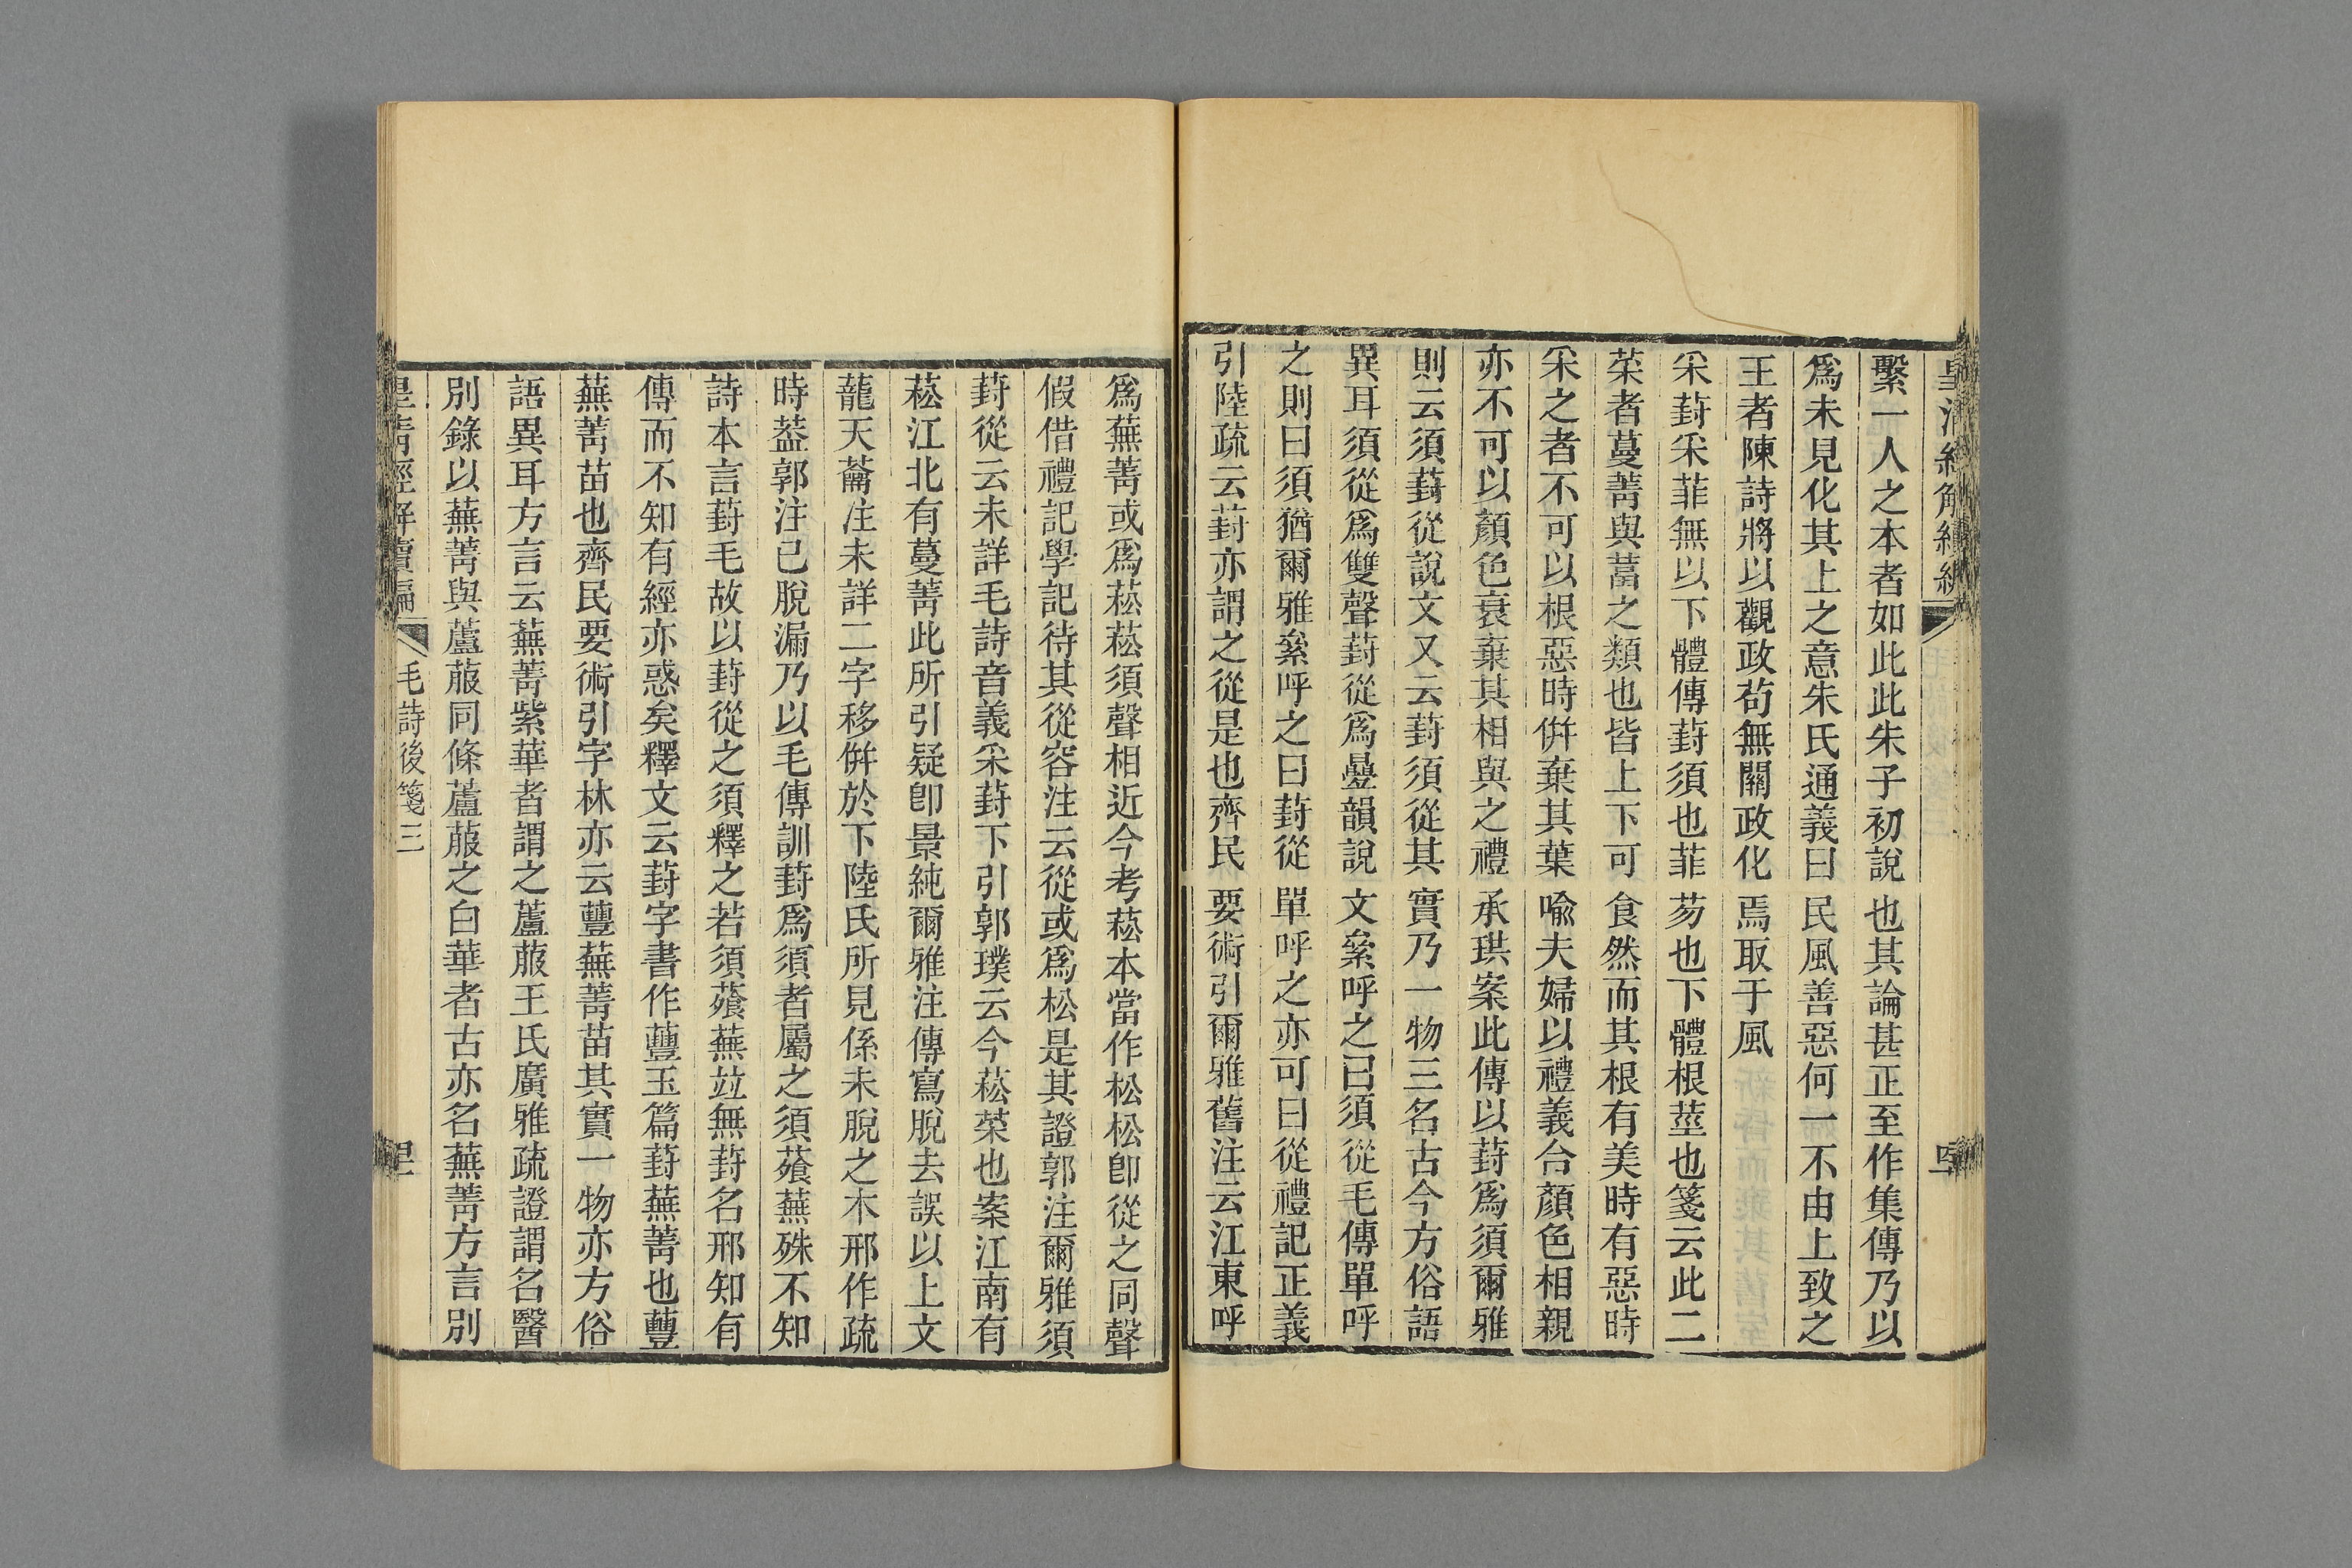 皇清經解續編
繫一人之本者如此此朱子初說也其論甚正至作集傳乃以
爲未見化其上之意朱氏通義曰民風善惡何一不由上致之
王者陳詩將以觀政苟無關政化焉取于風
采葑采菲無以下體傳葑須也菲芴也下體根莖也箋云此二
菜者蔓菁與葍之類也皆上下可食然而其根有美時有惡時
采之者不可以根惡時併棄其葉喩夫婦以禮義合顏色相親
亦不可以顏色衰棄其相與之禮承珙案此傳以葑爲須爾雅
則云須葑從說文又云葑須從其實乃一物三名古今方俗語
異耳須從爲雙聲葑從爲疊韻說文絫呼之曰須從毛傳單呼
之則曰須猶爾雅絫呼之曰葑從單呼之亦可曰從禮記正義
引陸疏云葑亦謂之從是也齊民要術引爾雅舊注云江東呼
爲蕪菁或爲菘菘須聲相近今考菘本當作松松卽從之同聲
假借禮記學記待其從容注云從或爲松是其證郭注爾雅須
葑從云未詳毛詩音義采葑下引郭璞云今菘菜也案江南有
菘江北有蔓菁此所引疑卽景純爾雅注傳寫脫去誤以上文
蘢天蘥注未詳二字移併於下陸氏所見係未脫之本邢作疏
時葢郭注已脫漏乃以毛傳訓葑爲須者屬之須薞蕪殊不知
詩本言葑毛故以葑從之須釋之若須薞蕪竝無葑名邢知有
傳而不知有經亦惑矣釋文云葑字書作蘴玉篇葑蕪菁也蘴
蕪菁苗也齊民要術引字林亦云蘴蕪菁苗其實一物亦方俗
語異耳方言云蕪菁紫華者謂之蘆菔王氏廣雅疏證謂名醫
別錄以蕪菁與蘆菔同條蘆菔之白華者古亦名蕪菁方言別
皇清經解續編 毛詩後箋三